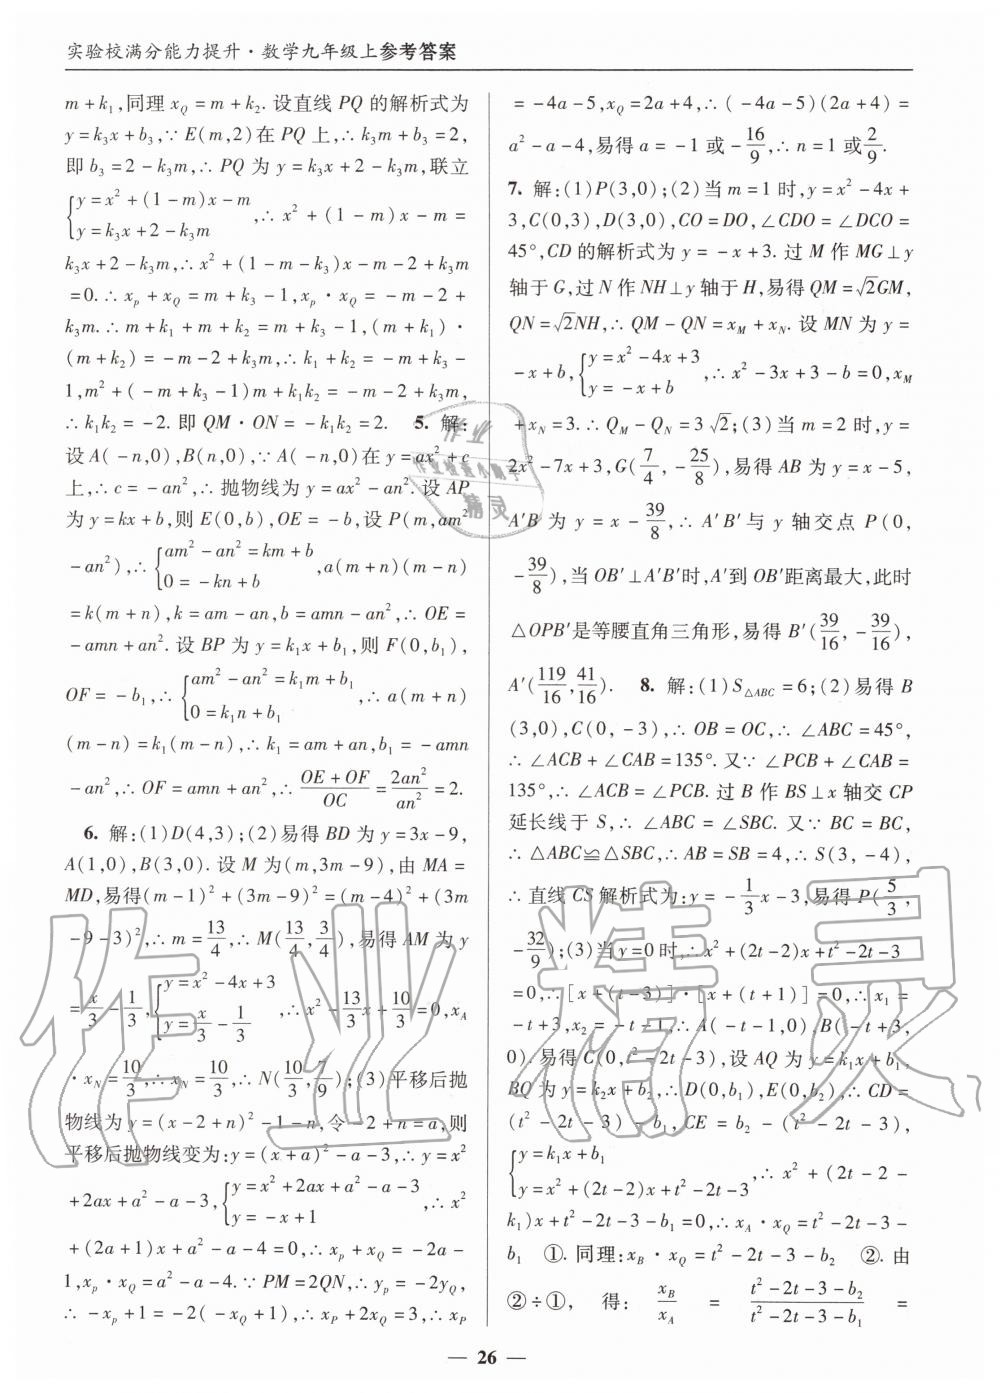 实验校满分能力提升·数学九年级上参考答案
m+k₁,同理 x_Q=m+k₂. 设直线 PQ 的解析式为
y=k₃x+b₃,∵E(m,2)在 PQ 上,∴k₃m+b₃=2,
即 b₃=2-k₃m,∴PQ 为 y=k₃x+2-k₃m,联立
{y=x²+(1-m)x-m
y=k₃x+2-k₃m ,∴x²+(1-m)x-m=
k₃x+2-k₃m,∴x²+(1-m-k₃)x-m-2+k₃m
=0.∴x_p+x_Q=m+k₃-1,x_p·x_Q=-m-2+
k₃m.∴m+k₁+m+k₂=m+k₃-1,(m+k₁)·
(m+k₂)=-m-2+k₃m,∴k₁+k₂=-m+k₃-
1,m²+(-m+k₃-1)m+k₁k₂=-m-2+k₃m,
∴k₁k₂=-2. 即 QM·ON=-k₁k₂=2. 5. 解:
设 A(-n,0),B(n,0),∵A(-n,0)在 y=ax²+c
上,∴c=-an²,∴抛物线为 y=ax²-an². 设 AP
为 y=kx+b,则 E(0,b),OE=-b,设 P(m,am²
-an²),∴{am²-an²=km+b
0=-kn+b ,a(m+n)(m-n)
=k(m+n),k=am-an,b=amn-an²,∴OE=
-amn+an². 设 BP 为 y=k₁x+b₁,则 F(0,b₁),
OF=-b₁,∴{am²-an²=k₁m+b₁
0=k₁n+b₁ ,∴a(m+n)
(m-n)=k₁(m-n),∴k₁=am+an,b₁=-amn
-an²,∴OF=amn+an²,∴(OE+OF)/OC=2an²/an²=2.
6. 解:(1)D(4,3);(2)易得 BD 为 y=3x-9,
A(1,0),B(3,0). 设 M 为(m,3m-9),由 MA=
MD,易得(m-1)²+(3m-9)²=(m-4)²+(3m
-9-3)²,∴m=13/4,∴M(13/4,3/4),易得 AM 为 y
=x/3-1/3,{y=x²-4x+3
y=x/3-1/3 ,∴x²-13/3x+10/3=0,x_A
·x_N=10/3,∴x_N=10/3,∴N(10/3,7/9);(3)平移后抛
物线为 y=(x-2+n)²-1-n,令-2+n=a,则
平移后抛物线变为:y=(x+a)²-a-3,∴y=x²
+2ax+a²-a-3,{y=x²+2ax+a²-a-3
y=-x+1 ,∴x²
+(2a+1)x+a²-a-4=0,∴x_p+x_Q=-2a-
1,x_p·x_Q=a²-a-4.∵PM=2QN,∴y_p=-2y_Q,
∴-x_p+1=-2(-x_Q+1),∴x_p+2x_Q=3,∴x_P
=-4a-5,x_Q=2a+4,∴(-4a-5)(2a+4)=
a²-a-4,易得 a=-1 或-16/9,∴n=1 或2/9.
7. 解:(1)P(3,0);(2)当 m=1 时,y=x²-4x+
3,C(0,3),D(3,0),CO=DO,∠CDO=∠DCO=
45°,CD 的解析式为 y=-x+3. 过 M 作 MG⊥y
轴于 G,过 N 作 NH⊥y 轴于 H,易得 QM=√2GM,
QN=√2NH,∴QM-QN=x_M+x_N. 设 MN 为 y=
-x+b,{y=x²-4x+3
y=-x+b ,∴x²-3x+3-b=0,x_M
+x_N=3.∴Q_M-Q_N=3√2;(3)当 m=2 时,y=
2x²-7x+3,G(7/4,-25/8),易得 AB 为 y=x-5,
A′B 为 y=x-39/8,∴A′B′与 y 轴交点 P(0,
-39/8),当 OB′⊥A′B′时,A′到 OB′距离最大,此时
△OPB′是等腰直角三角形,易得 B′(39/16,-39/16),
A′(119/16,41/16). 8. 解:(1)S△ABC=6;(2)易得 B
(3,0),C(0,-3),∴OB=OC,∴∠ABC=45°,
∴∠ACB+∠CAB=135°. 又∵∠PCB+∠CAB=
135°,∴∠ACB=∠PCB. 过 B 作 BS⊥x 轴交 CP
延长线于 S,∴∠ABC=∠SBC. 又∵BC=BC,
∴△ABC≌△SBC,∴AB=SB=4,∴S(3,-4),
∴直线 CS 解析式为:y=-1/3x-3,易得 P(5/3,
-32/9);(3)当 y=0 时,∴x²+(2t-2)x+t²-2t-3
=0,∴[x+(t-3)]·[x+(t+1)]=0,∴x₁=
-t+3,x₂=-t-1,∴A(-t-1,0),B(-t+3,
0). 易得 C(0,t²-2t-3),设 AQ 为 y=k₁x+b₁,
BQ 为 y=k₂x+b₂,∴D(0,b₁),E(0,b₂),∴CD=
(t²-2t-3)-b₁,CE=b₂-(t²-2t-3),
{y=k₁x+b₁
y=x²+(2t-2)x+t²-2t-3 ,∴x²+(2t-2-
k₁)x+t²-2t-3-b₁=0,∴x_A·x_Q=t²-2t-3-
b₁ ①. 同理:x_B·x_Q=t²-2t-3-b₂ ②. 由
②÷①,得:x_B/x_A=(t²-2t-3-b₂)/(t²-2t-3-b₁)=
— 26 —
作业
作业检查小助手
精灵
作业精灵